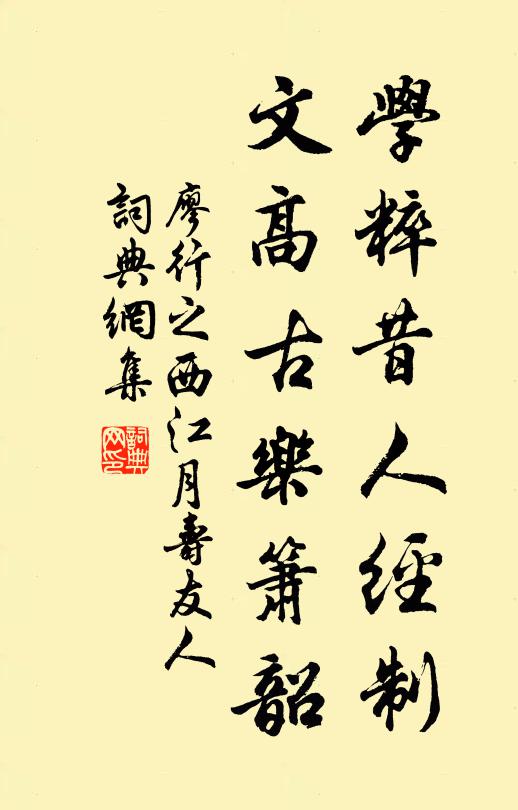 學粹昔人經制
文高古樂簫韶
廖行之西江月壽友人
詞典網集
詞典網印